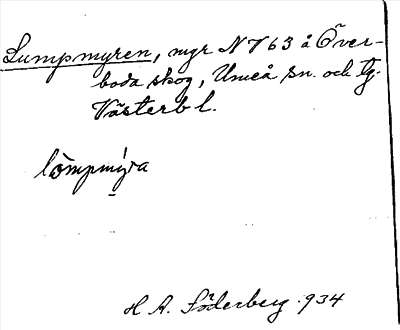 Lumpmyren, myr N 763 å Över-
boda skog, Umeå sn. och tg.
Västerb l.
lömpmýra
H. A. Söderberg. 934